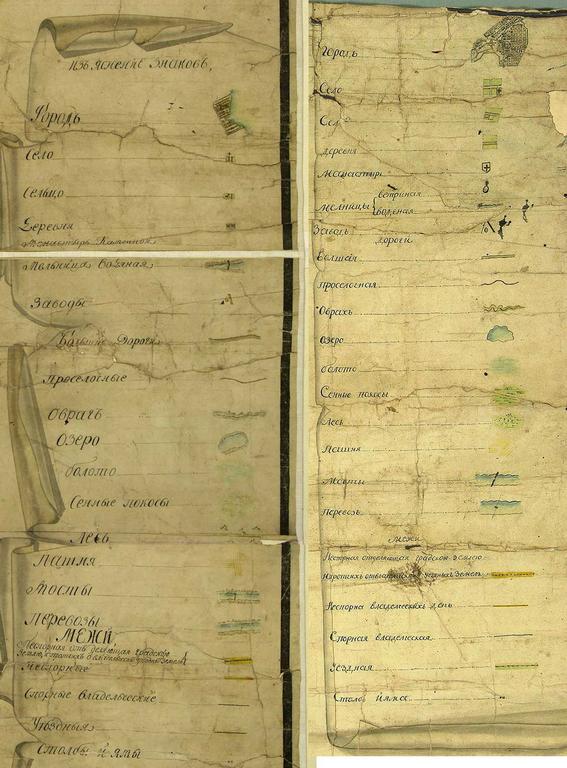 изъяснение знаковъ,
Городъ
Село
Сельцо
Деревня
Монастырь Каменной
Мельница водяная
Заводы
Большие Дороги
Проселочные
Оврагъ
Озеро
болото
Сенные покосы
Лесъ
Пашня
Мосты
Перевозы
МЕЖИ
Неспорные
Спорные владельческие
Уездныя
Столбы и ямы
городъ
Село
деревня
Монастырь
Мелницы
ветряная
водяная
Заводъ
дороги
болшая
проселочная
Оврахъ
озеро
болото
Сенные покосы
лесъ
Пашня
Мосты
перевозъ
межи
Неспорная
владелческихъ
Спорная владелческая
Уездная
Столбъ и яма